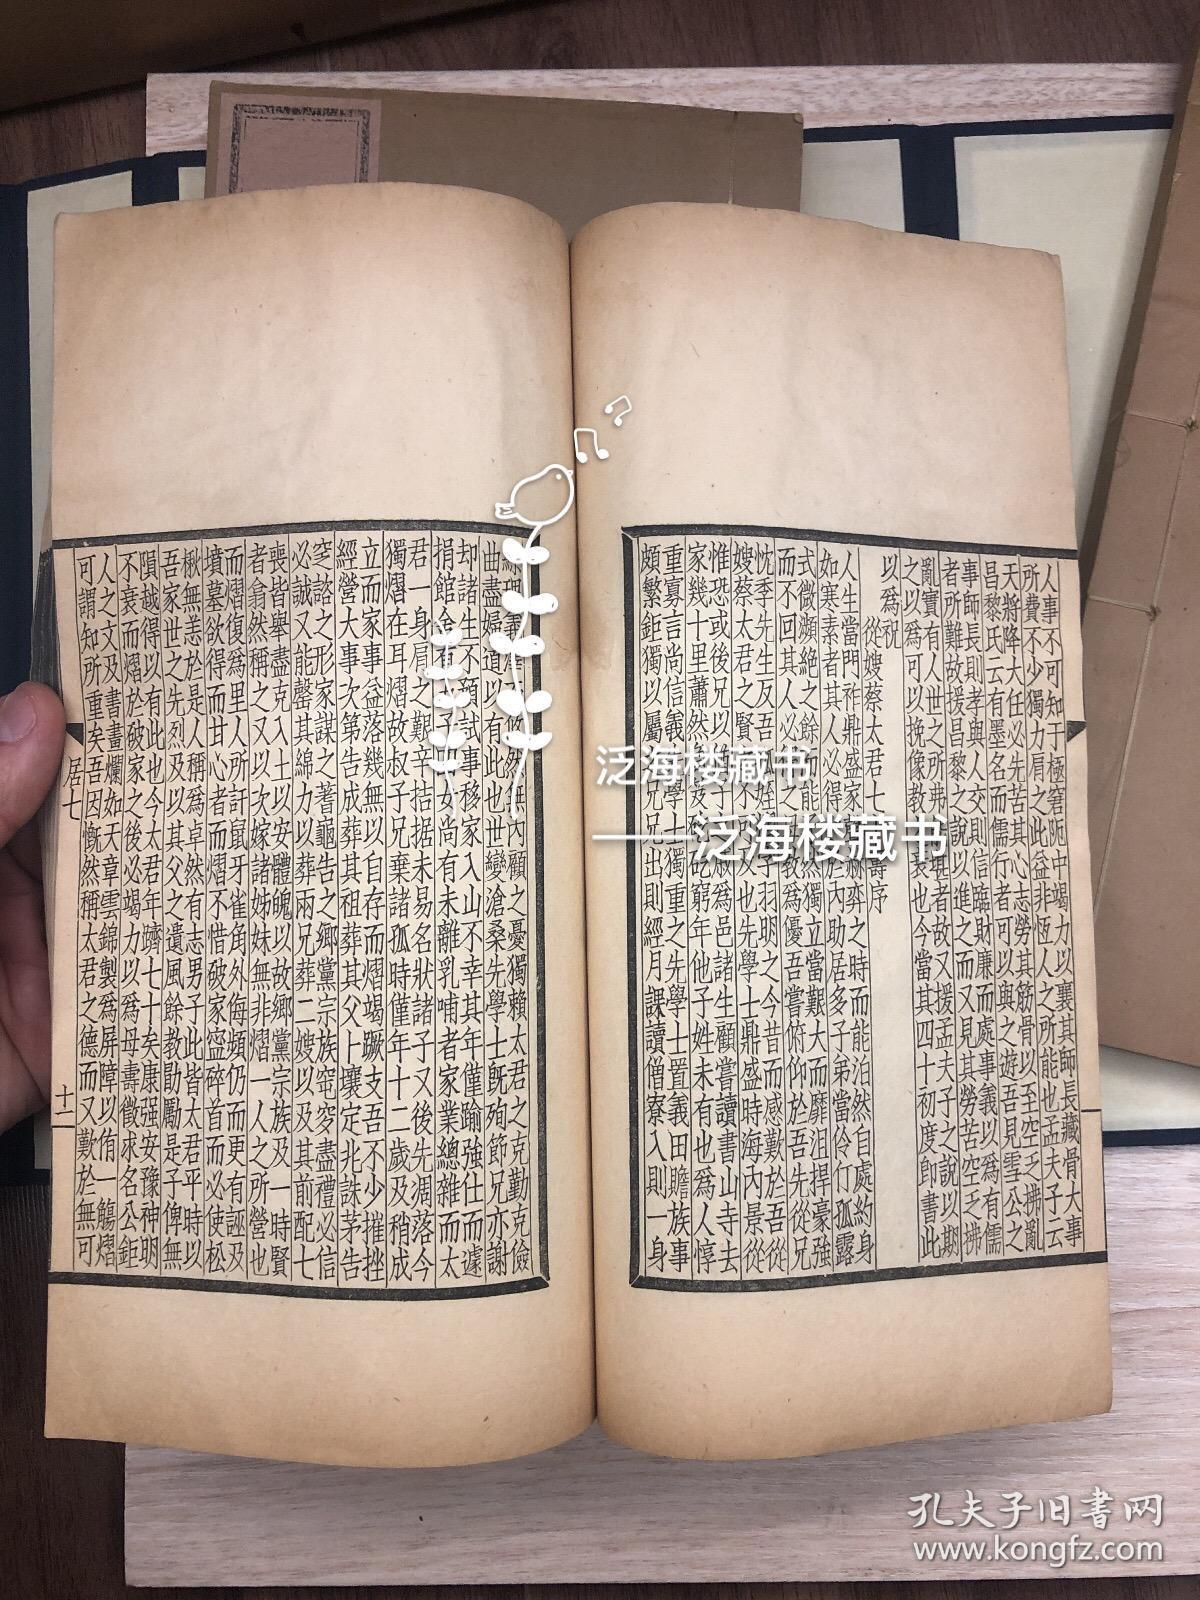 人事不可知于極窘阨中竭力以襄其師長藏骨大事
所費不少獨力肩之此益非恆人之所能也孟夫子云
天將降大任必先苦其心志勞其筋骨以至空乏拂亂
昌黎氏云有墨名而儒行者可以與之遊吾見雪公之
事師長則孝與人交則信臨財廉而處事義以為有儒
者所難故援昌黎之說以進之而又見其勞苦空乏拂
亂實有人世之所弗堪者故又援孟夫子之說以期
之以為可以挽像教
衰也今當其四十初度即書此
以為祝
從嫂蔡太君七
壽序
人生當門祚鼎盛家
赫弈之時而能泊然自處約身
如寒素者其人必得
於內助居多子弟當伶仃孤露
式微瀕絕之餘而能
然獨立當艱大而靡沮捍豪強
而不回其人必
之
教為優吾嘗俯仰於吾先從兄
忱季先生反吾
姪
子羽明之今昔而感歎於吾從
嫂蔡太君之賢
不可及也先學士鼎盛時海內景從
惟恐或後兄以
子
叔為邑諸生顧嘗讀書山寺去
家幾十里蕭然
安
矻窮年他子姓未有也為人惇
重寡言尚信義
學士獨重之先學士置義田贍族事
頗繁鉅獨以屬
兄兄出則經月課讀僧寮入則一身
曲盡婦道以有此也世變滄桑先學士既殉節兄亦謝
却諸生不預試事移家入山不幸其年僅踰強仕而遽
捐館舍
子
女尚有未離乳哺者家業總雜而太
君一身肩之艱辛拮据未易名狀諸子又後先凋落今
獨熠在耳熠故叔子兄棄諸孤時僅年十二歲及稍成
立而家事益落幾無以自存而熠竭蹶支吾不少摧挫
經營大事次第告成葬其祖葬其父卜壤定兆誅茅告
窆諮之形家謀之蓍龜告之鄉黨宗族窀穸盡禮必信
必誠又能罄其綿力以葬兩兄葬二嫂以及其前配七
喪皆舉盡克入土以安體魄以故鄉黨宗族及一時賢
者翕然稱之又以次嫁諸姊妹無非熠一人之所營也
而熠復為里人所訐鼠牙雀角外侮頻仍而更有誣及
墳墓欲得而甘心者而熠不惜破家寍碎首而必使松
楸無恙於是人稱為卓然有志男子此皆太君平時以
吾家世之先烈及以其父之遺風餘教勖勵是子俾無
隕越得以有此也今太君年躋七十矣康强安豫神明
不衰而熠於破家之後必竭力以為母壽徵求名公鉅
人之文及書畫爛如天章雲錦製為屏障以侑一觴熠
可謂知所重矣吾因慨然稱太君之德而又歎於無可
居七
十一
泛海楼藏书
——泛海楼藏书
孔夫子旧书网
www.kongfz.com